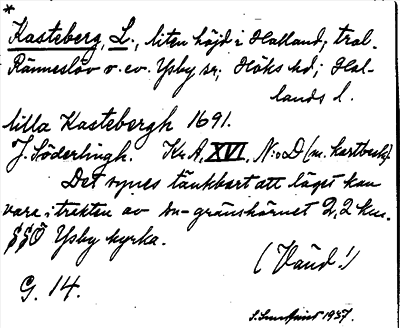 *
Kasteberg, L., liten höjd i Halland; trol.
Ränneslöv o. ev. Ysby sn; Höks hd; Hal-
lands l.
lilla Kastebergh 1691.
J. Söderlingh. Kr. A. XVI. N:o D (m. kartbesk).
Det synes tänkbart att läget kan
vara i trakten av sn-gränshörnet 2,2 km.
SSÖ Ysby kyrka.
(Vänd!)
G. 14.
1937.